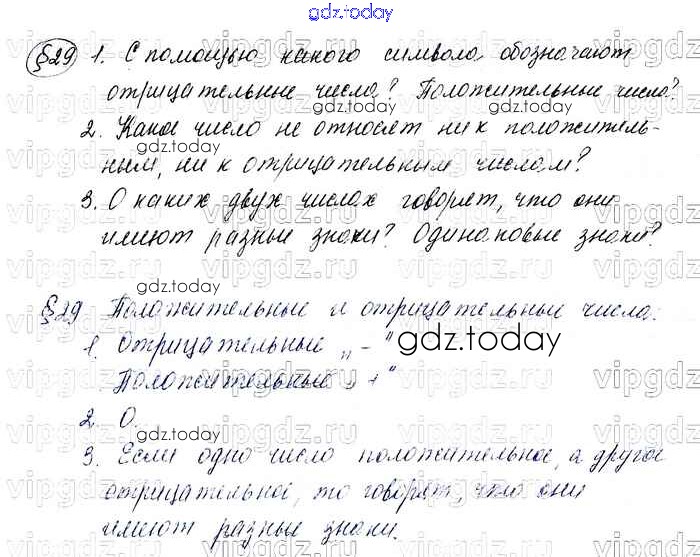 gdz.today
§29 1. С помощью какого символа обозначают
отрицательные числа? Положительные числа?
2. Какое число не относят ни к положитель-
ным, ни к отрицательным числам?
3. О каких двух числах говорят, что они
имеют разные знаки? Одинаковые знаки?
§29 Положительные и отрицательные числа.
1. Отрицательный „ - "
gdz.today
Положительный „ + "
2. 0.
gdz.today
3. Если одно число положительное, а другое
отрицательное, то говорят, что они
имеют разные знаки.